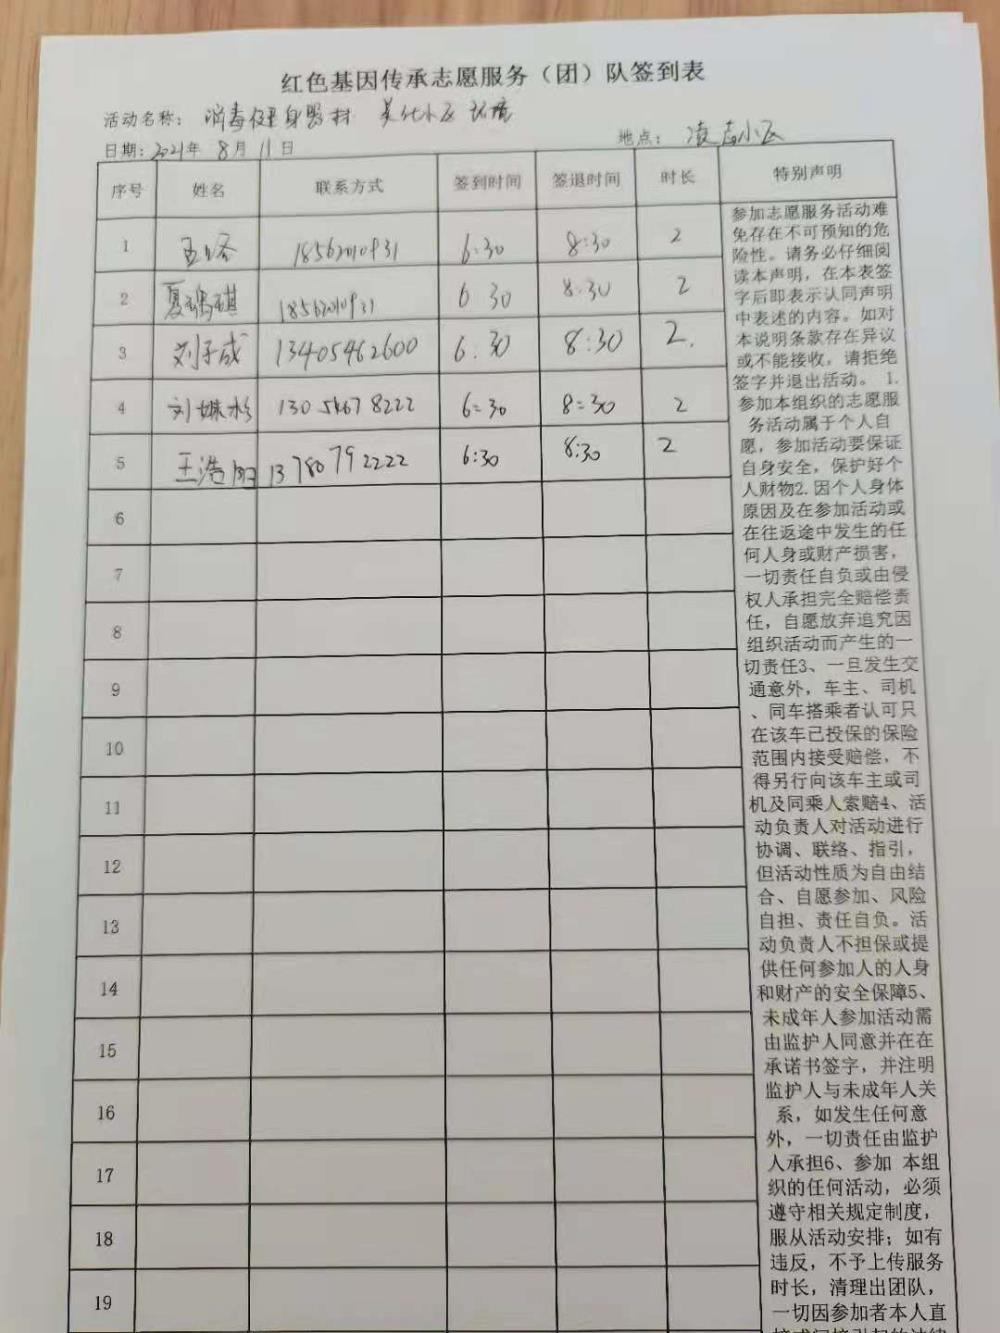 红色基因传承志愿服务（团）队签到表
活动名称：消毒健身器材 美化小区环境
日期：2021年 8月 11日 地点：凌 小区
序号 姓名 联系方式 签到时间 签退时间 时长 特别声明
1 18562010931 6:30 8:30 2
2 夏瑞琪 18562010931 6 30 8:30 2
3 刘子成 13405462600 6:30 8:30 2.
4 刘姝彤 13054678222 6:30 8:30 2
5 王浩 13780792222 6:30 8:30 2
6
7
8
9
10
11
12
13
14
15
16
17
18
19
参加志愿服务活动难
免存在不可预知的危
险性。请务必仔细阅
读本声明，在本表签
字后即表示认同声明
中表述的内容。如对
本说明条款存在异议
或不能接收，请拒绝
签字并退出活动。 1.
参加本组织的志愿服
务活动属于个人自
愿，参加活动要保证
自身安全，保护好个
人财物2.因个人身体
原因及在参加活动或
在往返途中发生的任
何人身或财产损害，
一切责任自负或由侵
权人承担完全赔偿责
任，自愿放弃追究因
组织活动而产生的一
切责任3、一旦发生交
通意外，车主、司机
、同车搭乘者认可只
在该车已投保的保险
范围内接受赔偿，不
得另行向该车主或司
机及同乘人索赔4、活
动负责人对活动进行
协调、联络、指引，
但活动性质为自由结
合、自愿参加、风险
自担、责任自负。活
动负责人不担保或提
供任何参加人的人身
和财产的安全保障5、
未成年人参加活动需
由监护人同意并在在
承诺书签字，并注明
监护人与未成年人关
系，如发生任何意
外，一切责任由监护
人承担6、参加 本组
织的任何活动，必须
遵守相关规定制度，
服从活动安排；如有
违反，不予上传服务
时长，清理出团队，
一切因参加者本人直